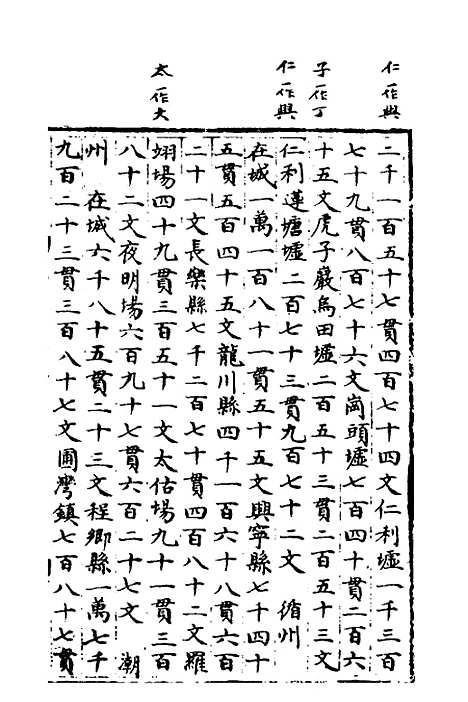 仁一作興
子一作丁
仁一作興
太一作大
二千一百五十七貫四百七十四文仁利墟一千三百
七十九貫八百七十六文崗頭墟七百四十貫二百六
十五文虎子巖烏田墟二百五十三貫二百五十三文
仁利蓮塘墟二百七十三貫九百七十二文 循州
在城一萬一百八十一貫五十五文興寧縣七千四十
五貫五百四十五文龍川縣四千一百六十八貫六百
二十一文長樂縣七千二百七十貫四百八十二文羅
翊場四十九貫三百五十一文太估場九十一貫三百
八十二文夜明場六百九十七貫六百二十七文 潮
州 在城六千八十五貫二十三文程鄉縣一萬七千
九百二十三貫三百八十七文圃灣鎮七百八十七貫